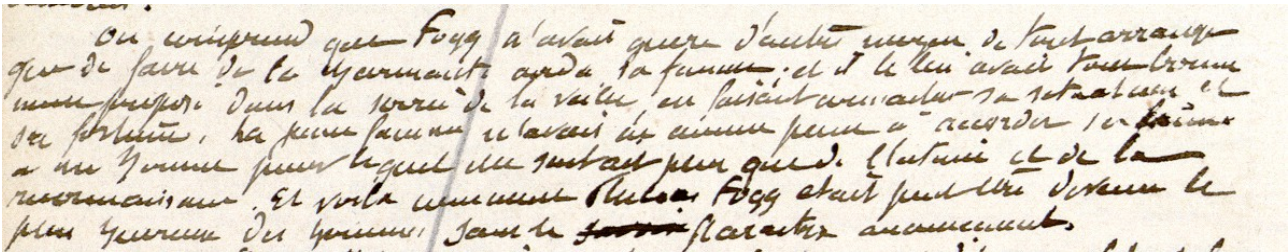 On comprend que Fogg n'avait guere d'autre moyen de tout arranger
que de faire de la charmante aoda sa femme; et il le lui avait tout bonne
ment proposé dans la soirée de la veille, en faisant connaitre sa situation et
sa fortune. La jeune femme n'avait eu aucune peine à accorder sa main
a un homme pour lequel elle sentait plus que de l'estime et de la
reconnaissance. Et voila comment Phileas Fogg etait peut etre devenu le
plus heureux des hommes sans le paraitre aucunement.